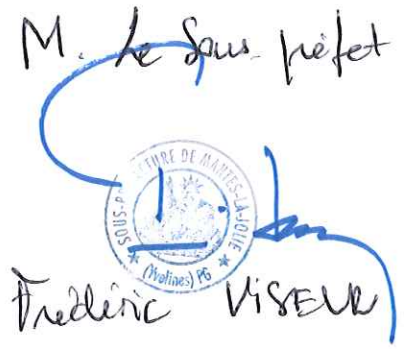 M. Le Sous-préfet
SOUS-PRÉFECTURE DE MANTES-LA-JOLIE
(Yvelines) PG
Frédéric VISEUR